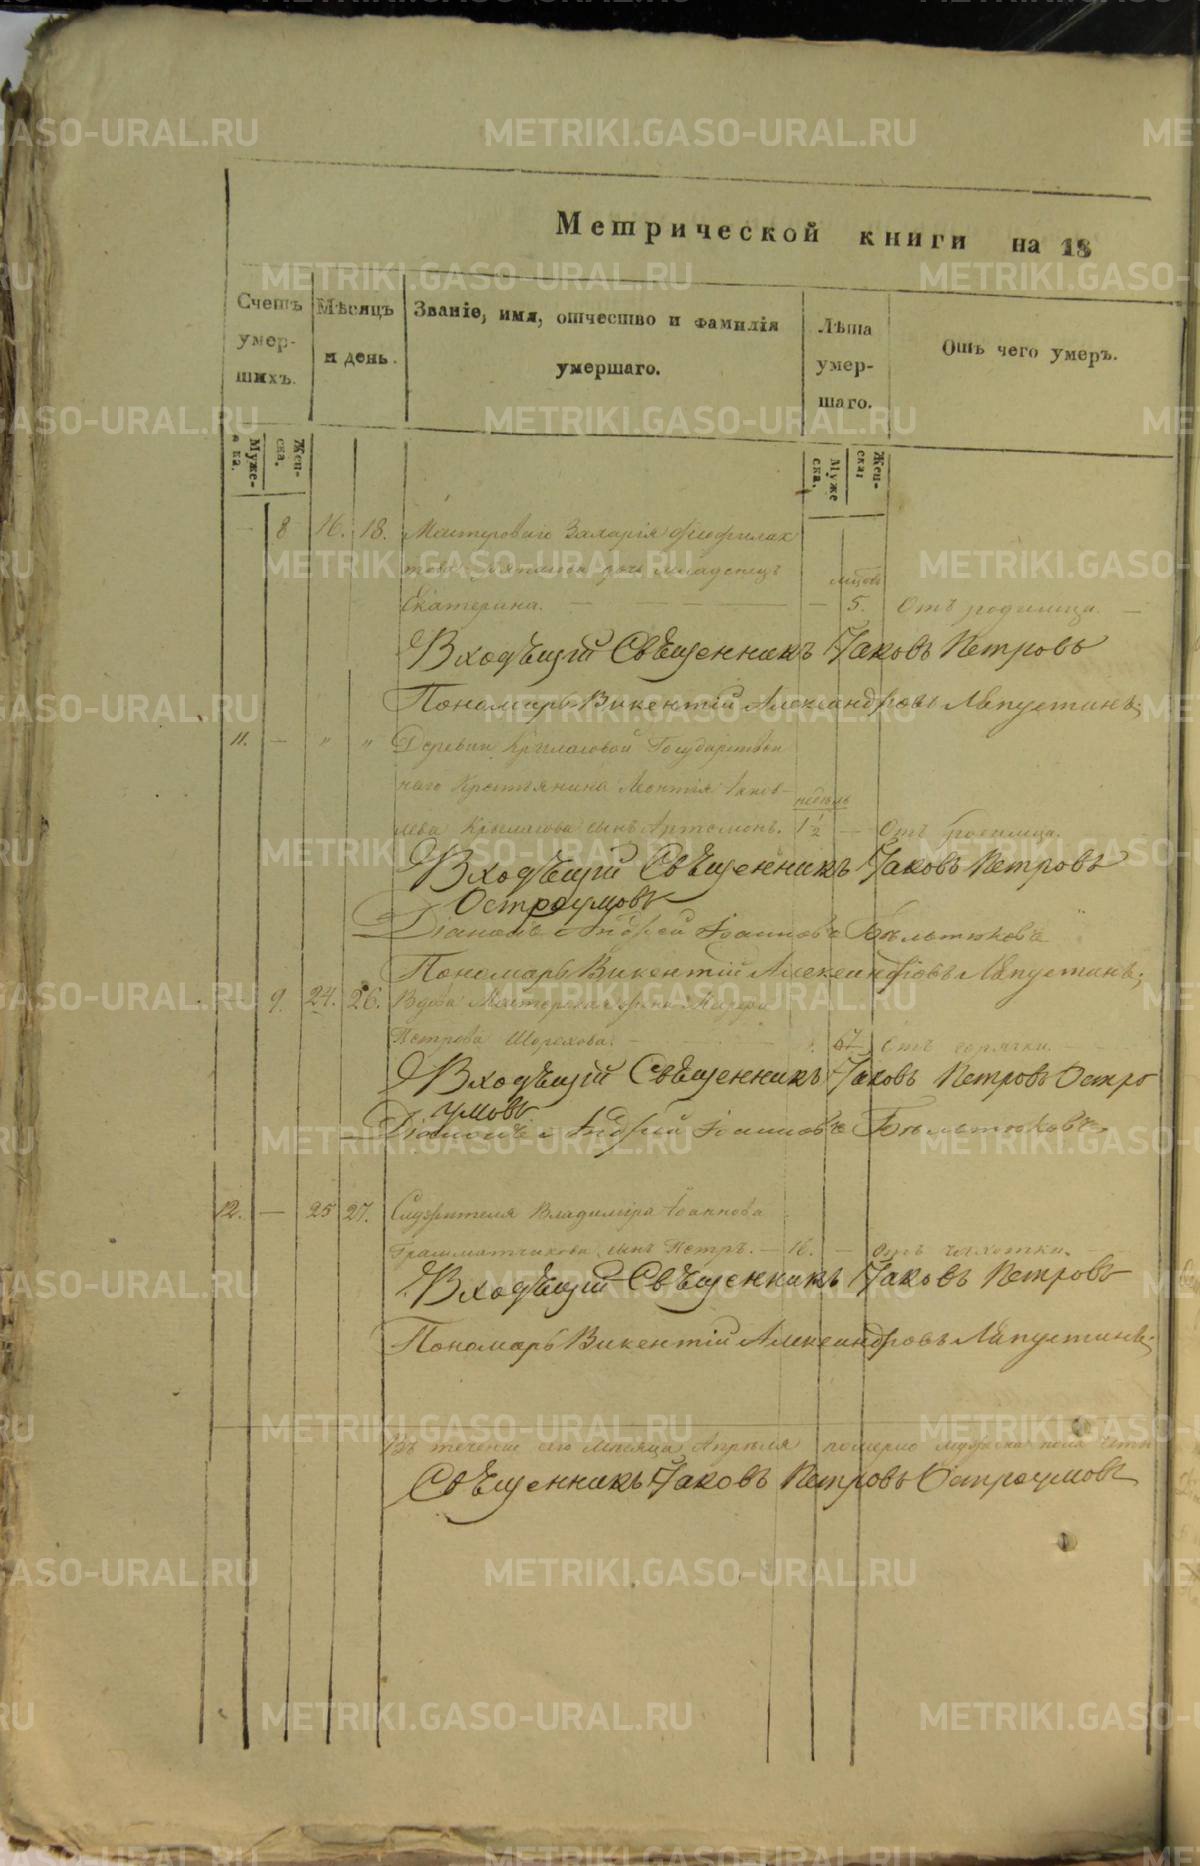 Метрической книги на 18
Счетъ умер-шихъ.
Мѣсяцъ и день.
Званіе, имя, отчество и фамилія умершаго.
Лѣта умер-шаго.
Отъ чего умеръ.
Муже-ска.
Жен-ска.
Муже ска.
Жен-ска:
8 16. 18. Мастероваго Захарія Феофилак
това дочь младенецъ мѣсяцъ
Екатерина. — 5. Отъ родимца. —
Входящій Священникъ Іаковъ Петровъ
Пономарь Викентій Александровъ Лапустинъ;
11. — " " Деревни Крыласовой Государствен
наго Крестьянина Леонтія Іаков- недѣль
лева Крыласова сынъ Артемонъ. 1½ — Отъ родимца.
Входящій Священникъ Іаковъ Петровъ
Остроумовъ
Діаконъ Андрей Іоанновъ Бѣльтюковъ
Пономарь Викентій Александровъ Лапустинъ;
— 9. 24. 26. Вдова Мастерская жена
Петрова Шорохова. — 67. Отъ горячки. —
Входящій Священникъ Іаковъ Петровъ Остро
умовъ
Діаконъ Андрей Іоанновъ Бѣльтюковъ.
12. — 25 27. Служителя Владиміра Іоаннова
Грамматчикова сынъ Петръ. — 16. — Отъ чахотки.
Входящій Священникъ Іаковъ Петровъ
Пономарь Викентій Александровъ Лапустинъ;
Въ теченіе сего Мѣсяца Апрѣля померло мужска пола
Священникъ Іаковъ Петровъ Остроумовъ
METRIKI.GASO-URAL.RU